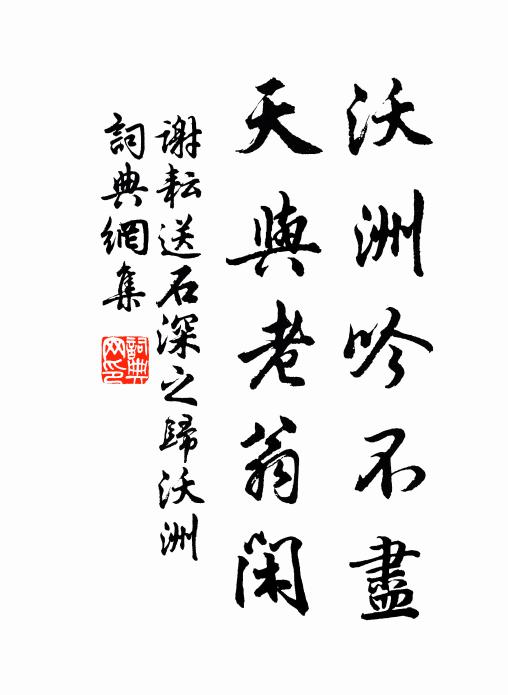 沃洲吟不盡
天與老翁閑
謝耘送石深之歸沃洲
詞典網集
詞典網印